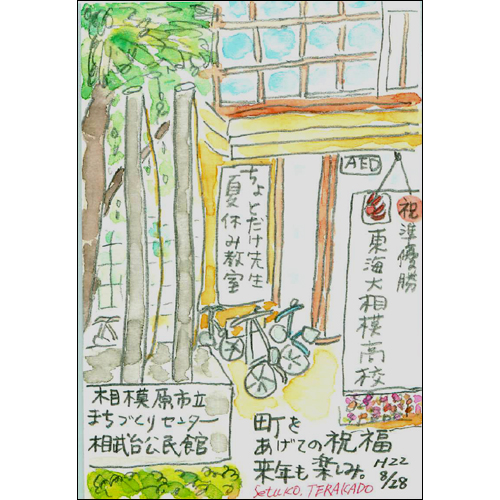 AED
祝 準優勝
東海大相模高校
ちょとだけ先生
夏休み教室
相模原市立
まちづくりセンター
相武台公民館
町を
あげての祝福
来年も楽しみ。
H22
8/28
Setuko. TERAKADO